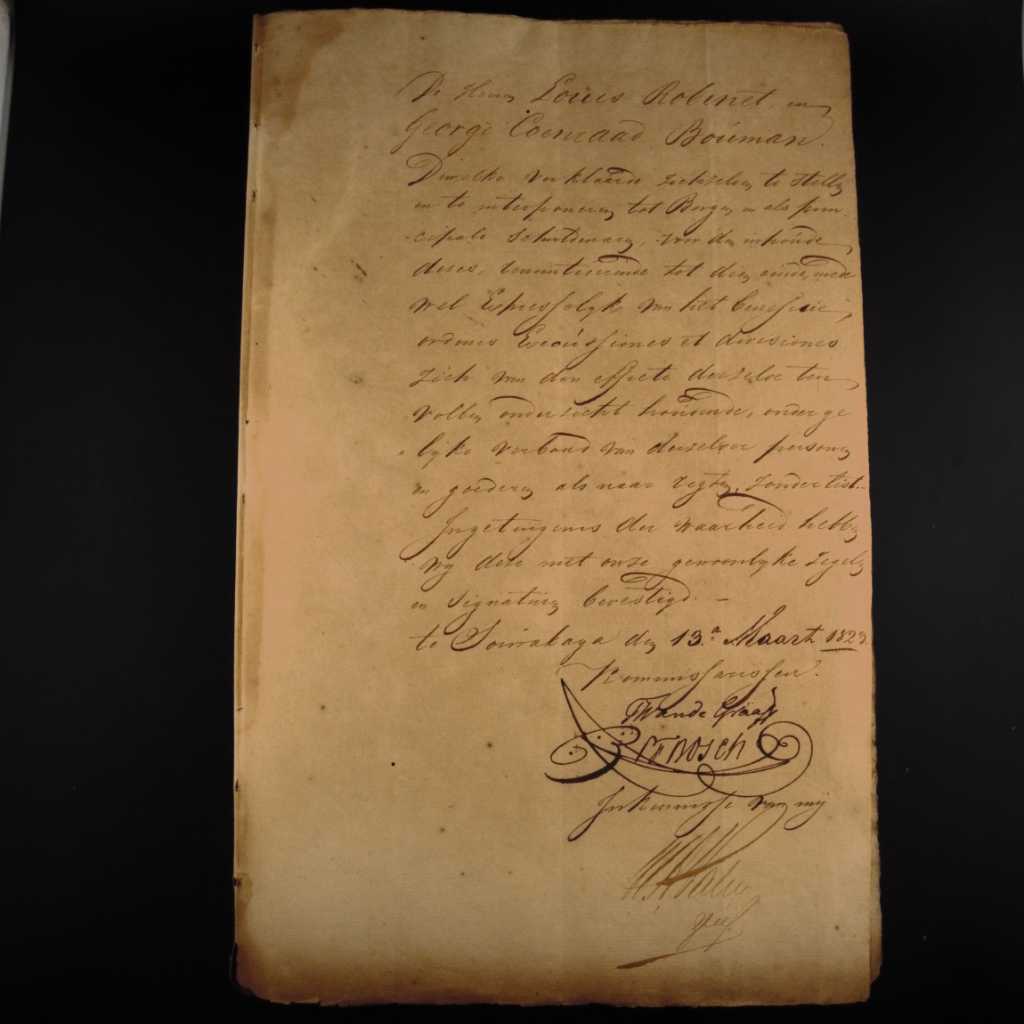 De Heeren Louis Robinet, en
George Coenraad Bouman.
Dewelke verklaarde zichzelven te stellen
en te interponeren tot Borgen en als prin
cipale Schuldenaren, voor den inhoude
deses, renuntieerende tot dien einde, mede
wel Expresselyk van het beneficie,
ordines Excussiones et divisiones
zich van den effecte derzelve ten
vollen onderricht houdende, onder ge
lyke verband van derzelver persoonen
en goederen als naar regten, zonder list.
In getuigenis der waarheid hebben
wy deze met onze gewoonlyke zegels
en Signaturen bevestigd. —
te Sourabaya den 13.e Maart 1823.
Kommissarissen.
van de Graaff
Bosch
In kennisse van my